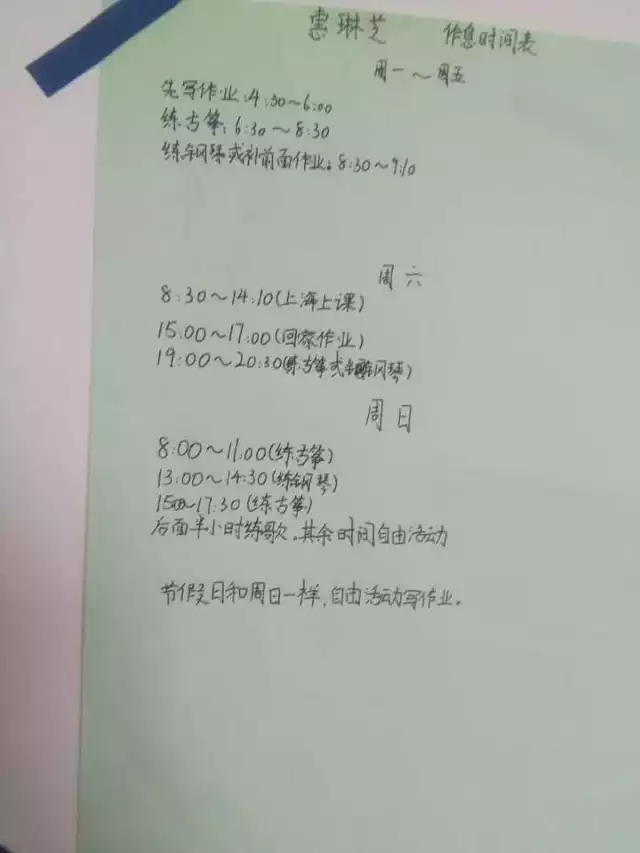 惠琳芝 作息时间表
周一～周五
先写作业:4:30～6:00
练古筝:6:30～8:30
练钢琴或补前面作业:8:30～9:10
周六
8:30～14:10(上海上课)
15:00～17:00(回家作业)
19:00～20:30(练古筝或钢琴)
周日
8:00～11:00(练古筝)
13:00～14:30(练钢琴)
1500～17:30(练古筝)
后面半小时练歌,其余时间自由活动
节假日和周日一样,自由活动写作业。